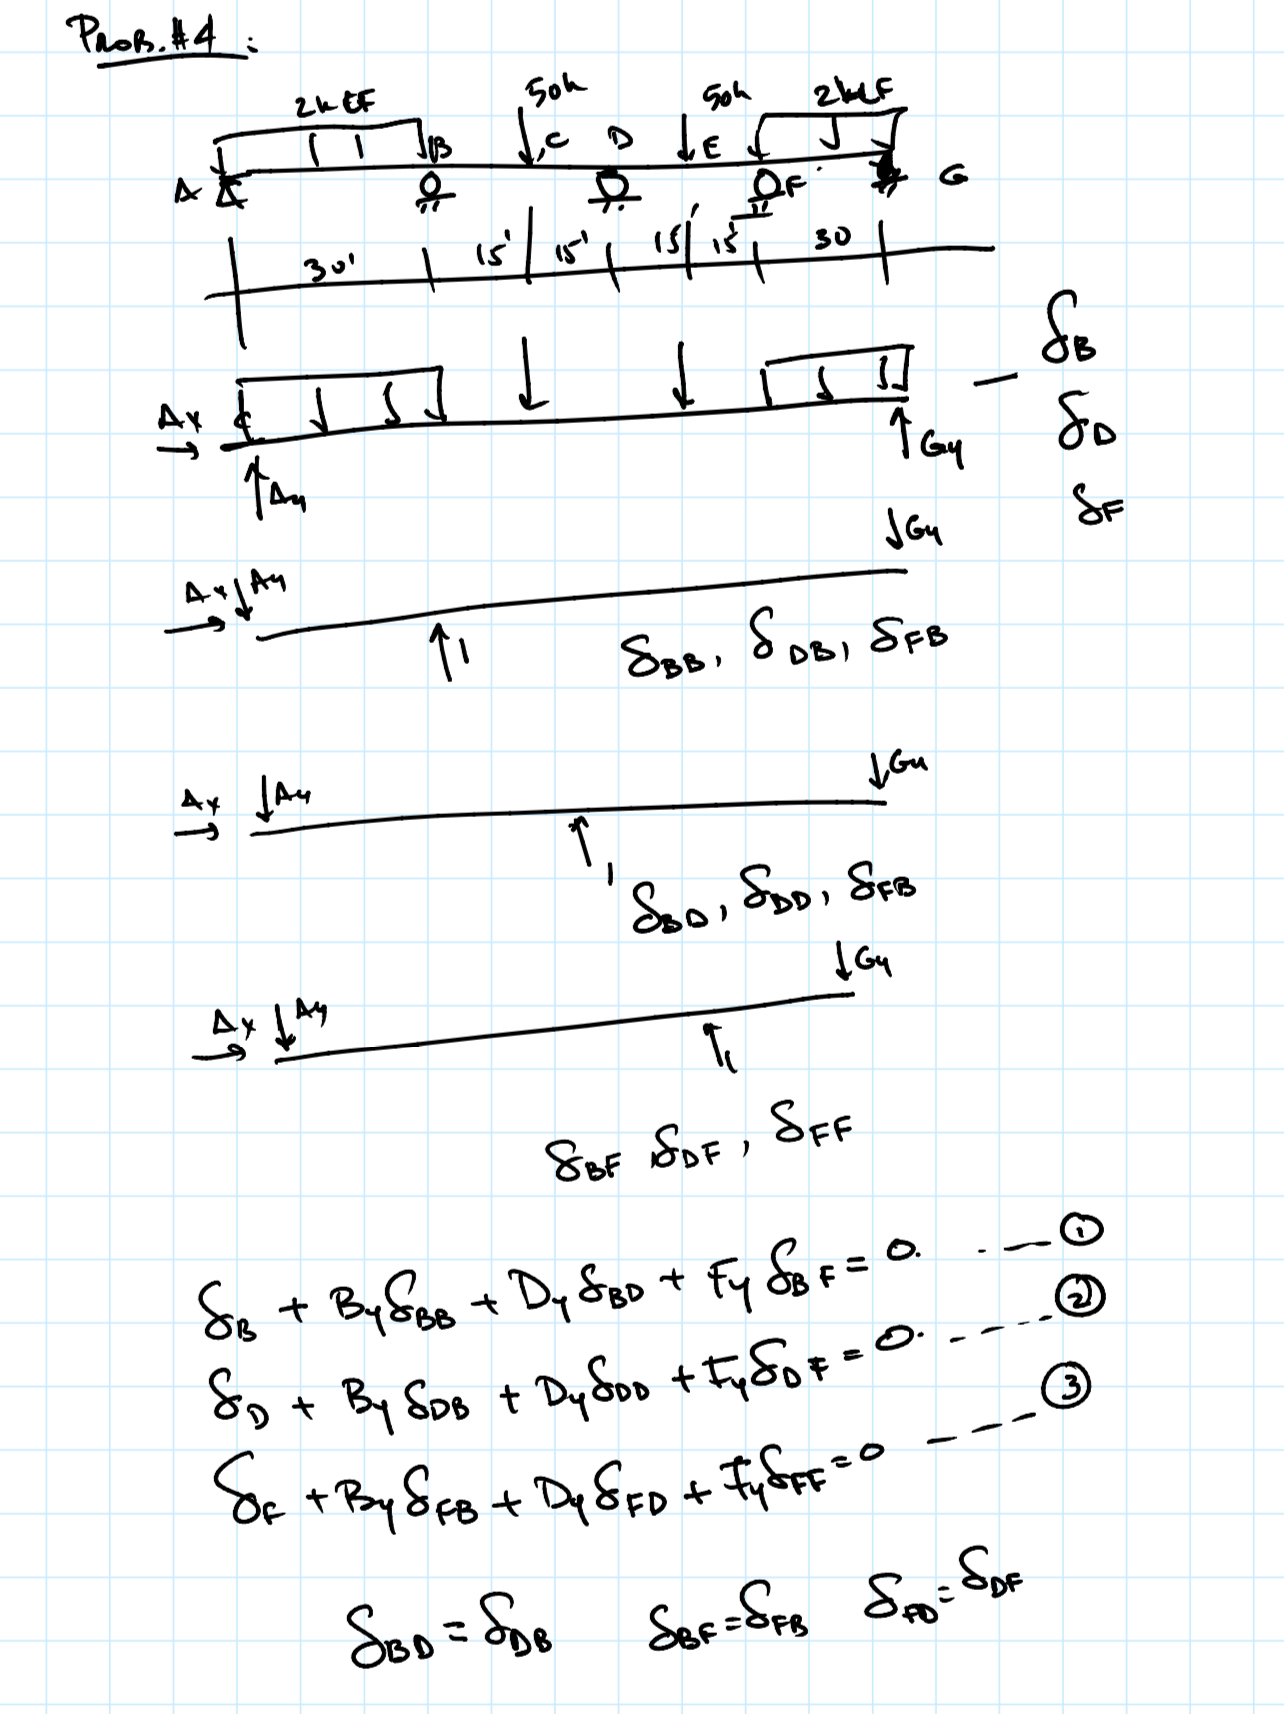 PROB. #4 :
2k EF 50k 50k 2kLF
A B C D E F G
30' 15' 15' 15' 15' 30
δB
δD
δF
Ax Ay Gy
Ax Ay Gy
1
δBB, δDB, δFB
Ax Ay Gy
1
δBD, δDD, δFB
Ax Ay Gy
1
δBF δDF, δFF
δB + By δBB + Dy δBD + Fy δBF = 0. --- ①
δD + By δDB + Dy δDD + Fy δDF = 0. ---- ②
δF + By δFB + Dy δFD + Fy δFF = 0 ---- ③
δBD = δDB δBF = δFB δFD = δDF